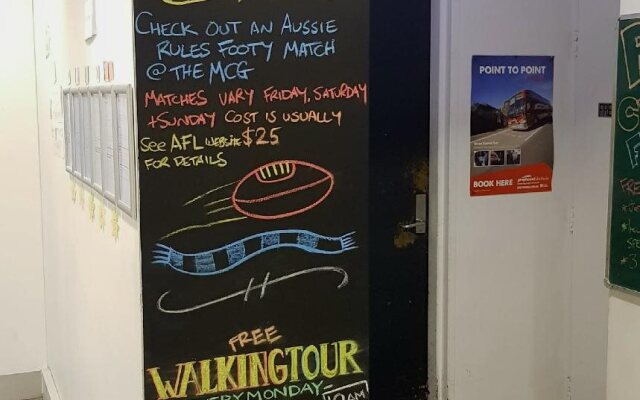 CHECK OUT AN AUSSIE
RULES FOOTY MATCH
@ THE MCG
MATCHES VARY FRIDAY, SATURDAY
+SUNDAY COST IS USUALLY
SEE AFL WEBSITE $25
FOR DETAILS
FREE
WALKING TOUR
EVERY MONDAY-
10AM
POINT TO POINT
BOOK HERE